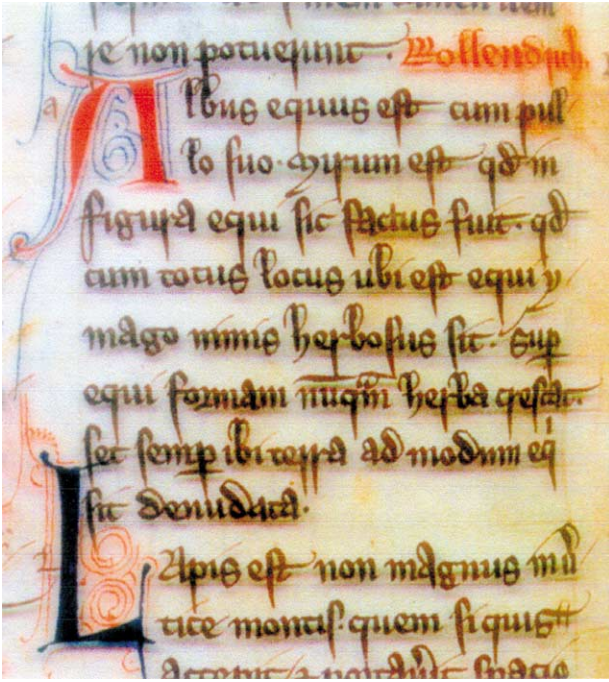 re non potuerunt.
Albus equus est cum pul
lo suo. Mirum est qd in
figura equi sic factus fuit. qd
cum totus locus ubi est equi y
mago nimis herbosus sit. sup
equi formam nuqm herba crescat.
set semp ibi terra ad modum eqi
sit denudata.
Lapis est non magnus in
tice montis. quem si quis